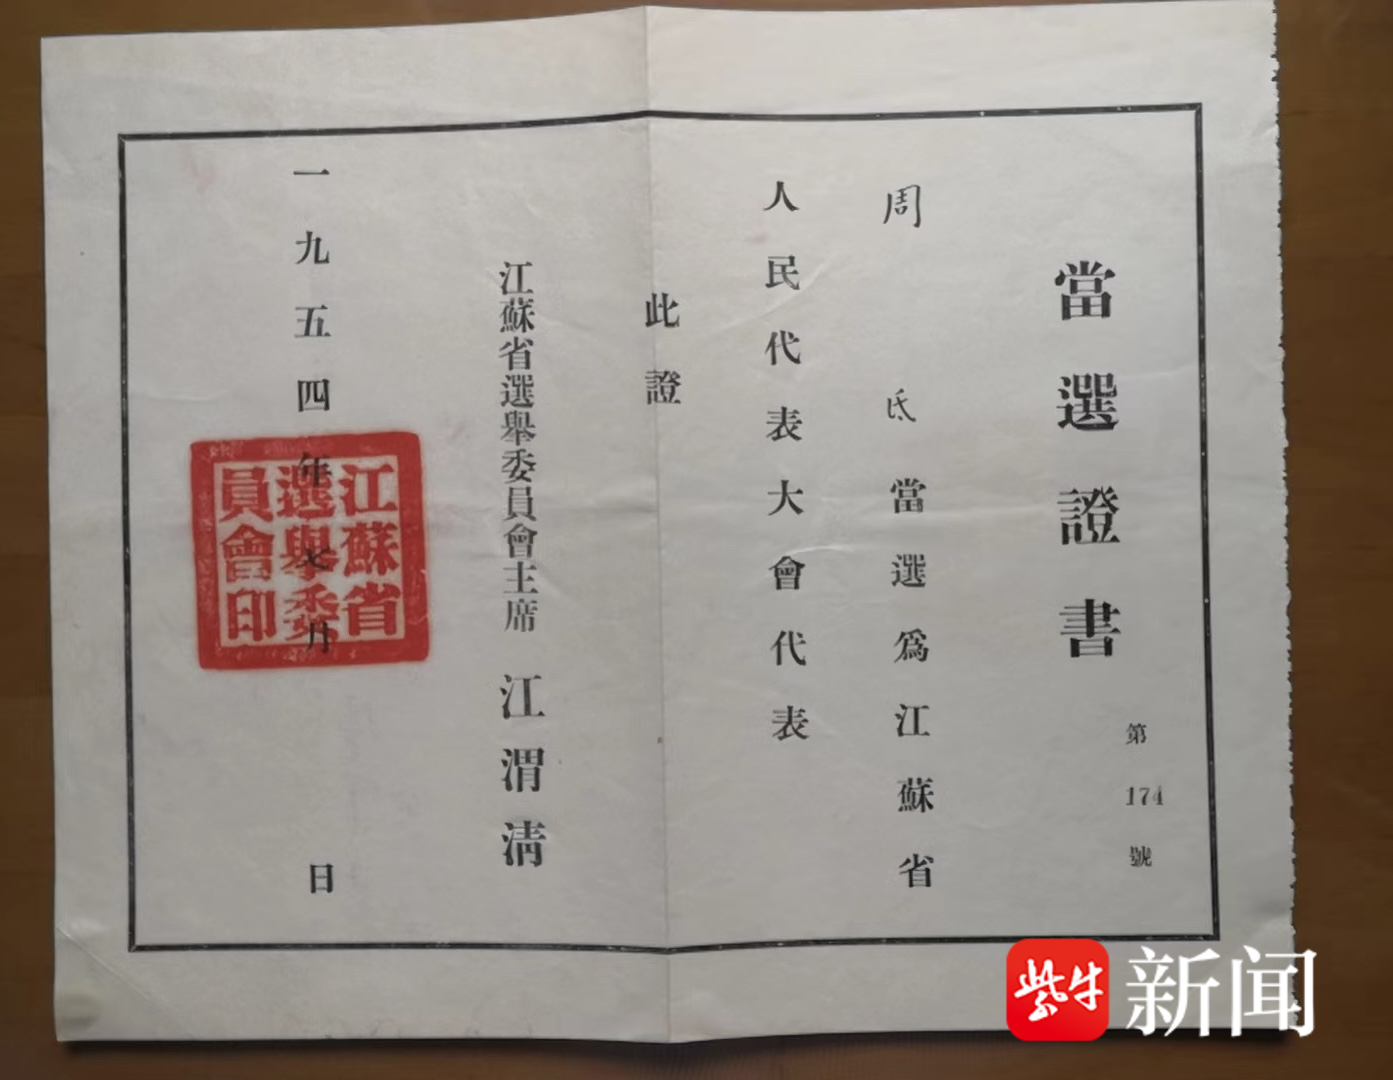 當選證書
第174號
周氏當選爲江蘇省
人民代表大會代表
此證
江蘇省選舉委員會主席 江渭清
一九五四年七月 日
江蘇省
選舉委
員會印
紫牛新闻